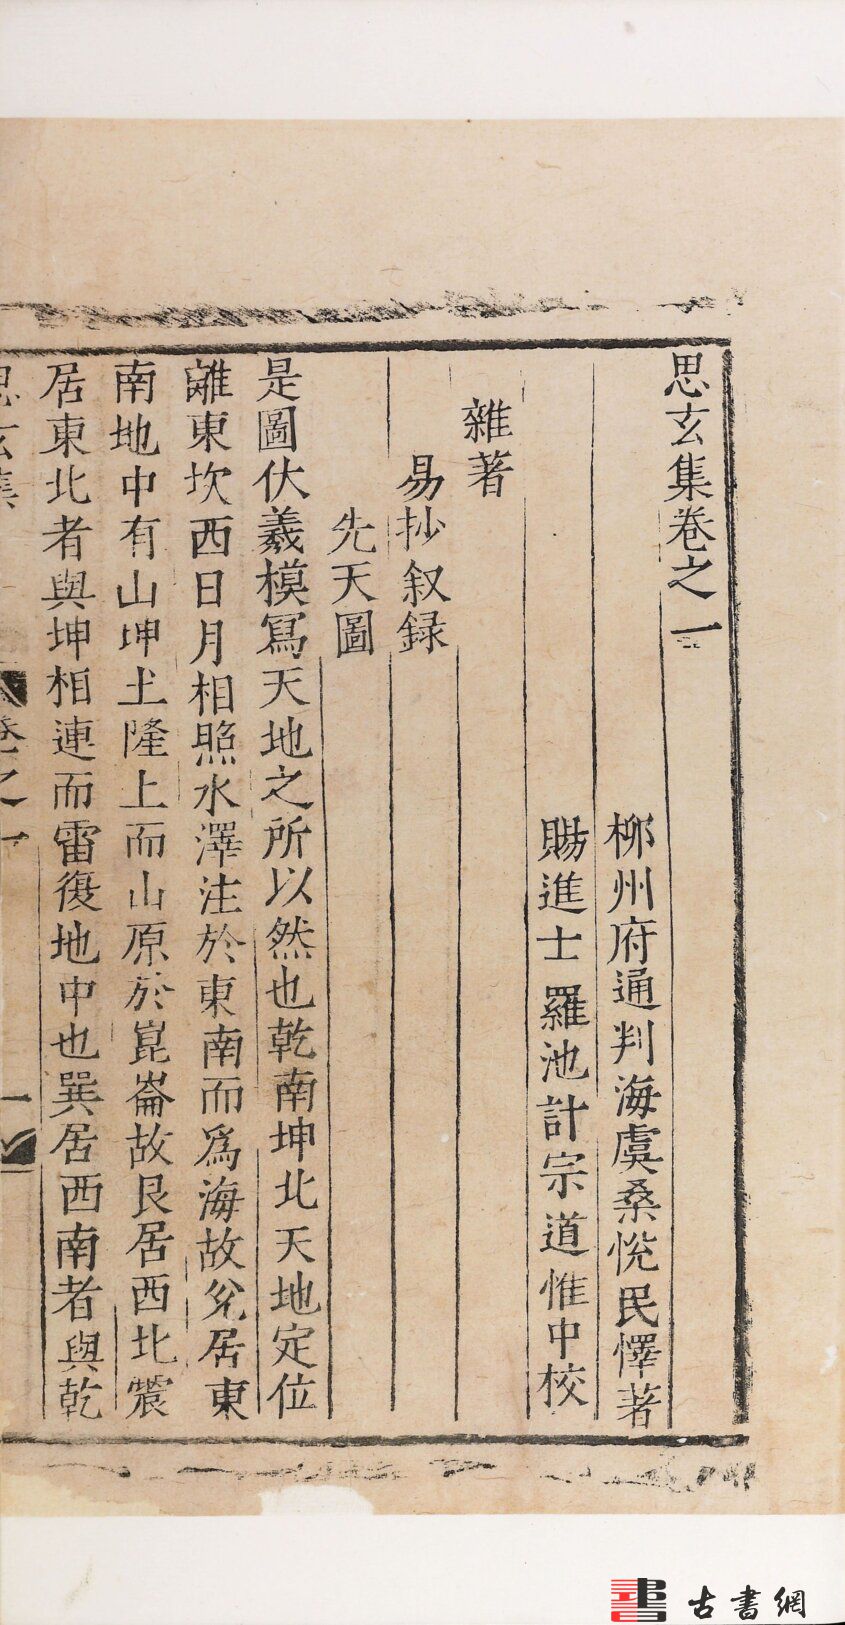 思玄集卷之一
柳州府通判海虞桑悅民懌著
賜進士羅池計宗道惟中校
雜著
易抄叙録
先天圖
是圖伏羲模寫天地之所以然也乾南坤北天地定位
離東坎西日月相照水澤注於東南而爲海故兌居東
南地中有山坤土隆上而山原於崑崙故艮居西北震
居東北者與坤相連而雷復地中也巽居西南者與乾
思玄集
卷之一
一
古書網